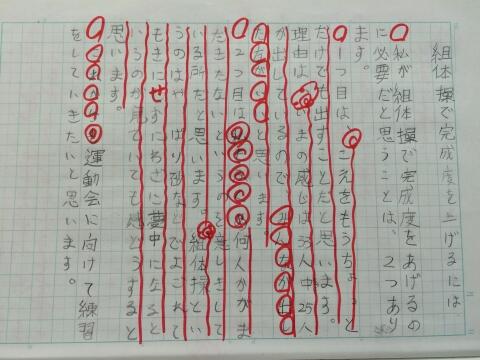 組体操で完成度を上げるには
私が組体操で完成度をあげるの
に必要だと思うことは、2つあり
ます。
1つ目は、こえをもうちょっと
だけでも出すことだと思います。
理由は、いまの感じは53人中25人
が出しているのでみんなが出し
たほうがいいと思います
2つ目は
何人かがま
だきたないというのを意しきして
いる所だと思います。組体操とい
うのはやっぱり砂などでよごれて
もきにせずにわざに夢中になると
いうのが見ていても感どうすると
思います。
運動会に向けて練習
をしていきたいと思います。